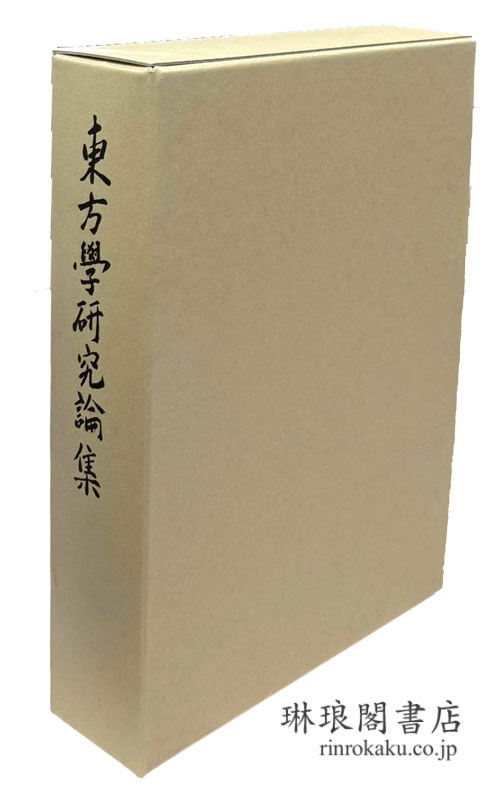 東方學研究論集
琳琅閣書店
rinrokaku.co.jp